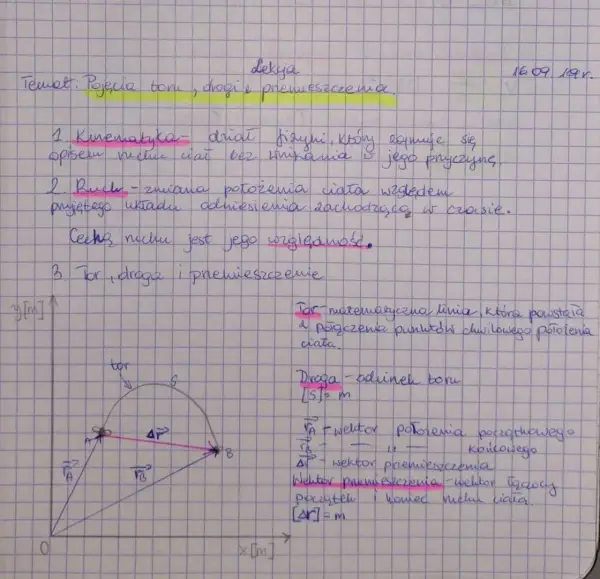 Lekcja 16.09.19r.
Temat: Pojęcia toru, drogi i przemieszczenia.
1. Kinematyka - dział fizyki, który zajmuje się
opisem ruchu ciał bez wnikania w jego przyczynę.
2. Ruch - zmiana położenia ciała względem
przyjętego układu odniesienia zachodzącą w czasie.
Cechą ruchu jest jego względność.
3. Tor, droga i przemieszczenie
y[m]
tor
S
A
Δr
B
rA
rB
O
x[m]
Tor - matematyczna linia, która powstała
z połączenia punktów chwilowego położenia
ciała.
Droga - odcinek toru
[S] = m
rA - wektor położenia początkowego
rB - — " — końcowego
Δr - wektor przemieszczenia
Wektor przemieszczenia - wektor łączący
początek i koniec ruchu ciała.
[Δr] = m